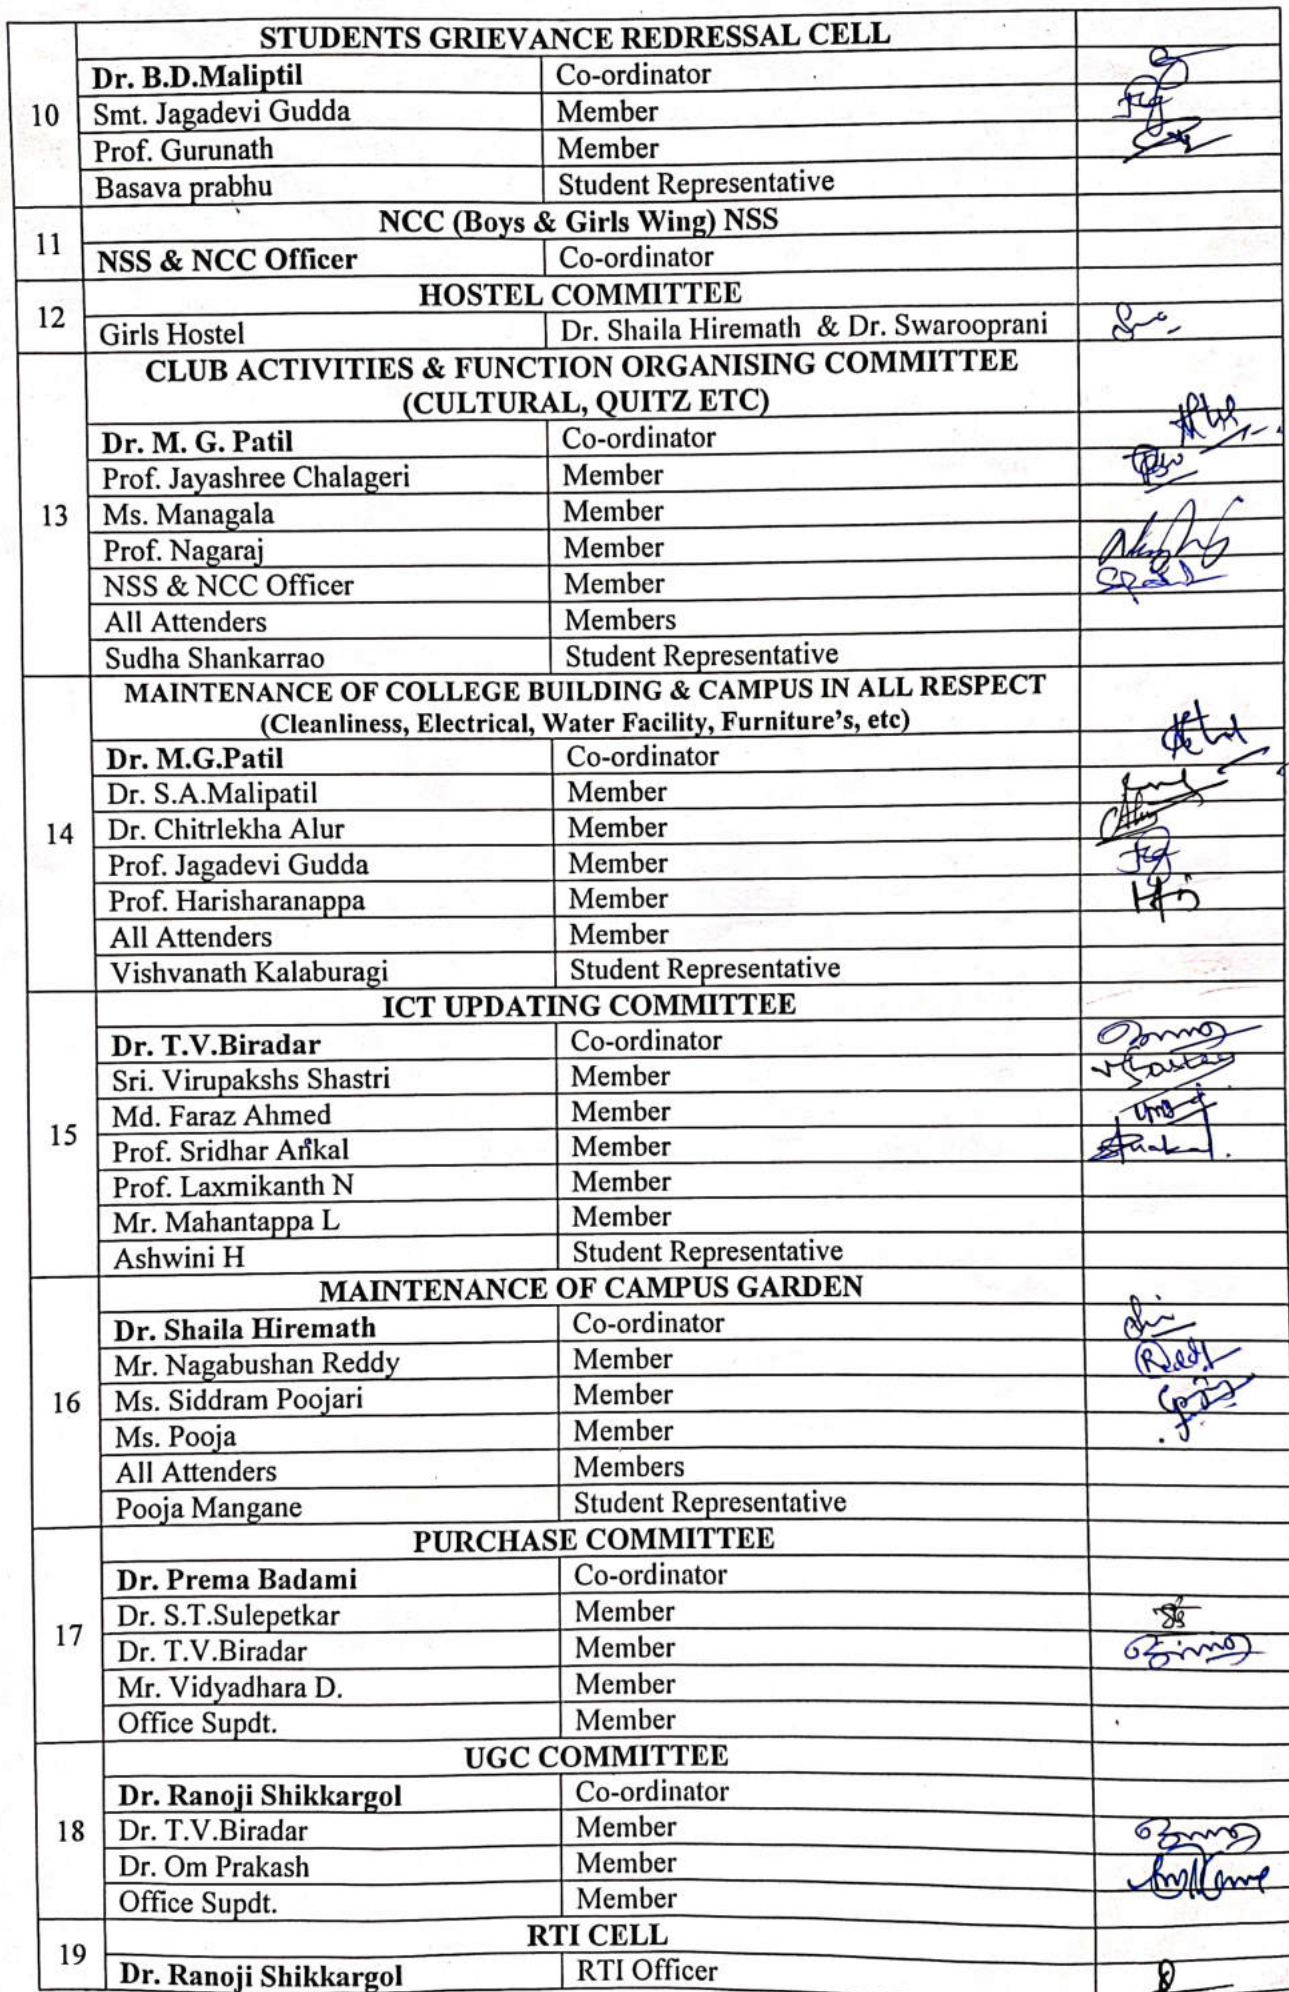 STUDENTS GRIEVANCE REDRESSAL CELL
Dr. B.D.Maliptil Co-ordinator
10 Smt. Jagadevi Gudda Member
Prof. Gurunath Member
Basava prabhu Student Representative
11 NCC (Boys & Girls Wing) NSS
NSS & NCC Officer Co-ordinator
12 HOSTEL COMMITTEE
Girls Hostel Dr. Shaila Hiremath & Dr. Swarooprani
CLUB ACTIVITIES & FUNCTION ORGANISING COMMITTEE
(CULTURAL, QUITZ ETC)
Dr. M. G. Patil Co-ordinator
Prof. Jayashree Chalageri Member
13 Ms. Managala Member
Prof. Nagaraj Member
NSS & NCC Officer Member
All Attenders Members
Sudha Shankarrao Student Representative
MAINTENANCE OF COLLEGE BUILDING & CAMPUS IN ALL RESPECT
(Cleanliness, Electrical, Water Facility, Furniture's, etc)
Dr. M.G.Patil Co-ordinator
Dr. S.A.Malipatil Member
14 Dr. Chitrlekha Alur Member
Prof. Jagadevi Gudda Member
Prof. Harisharanappa Member
All Attenders Member
Vishvanath Kalaburagi Student Representative
ICT UPDATING COMMITTEE
Dr. T.V.Biradar Co-ordinator
Sri. Virupakshs Shastri Member
Md. Faraz Ahmed Member
15 Prof. Sridhar Ankal Member
Prof. Laxmikanth N Member
Mr. Mahantappa L Member
Ashwini H Student Representative
MAINTENANCE OF CAMPUS GARDEN
Dr. Shaila Hiremath Co-ordinator
Mr. Nagabushan Reddy Member Reddy
16 Ms. Siddram Poojari Member
Ms. Pooja Member
All Attenders Members
Pooja Mangane Student Representative
PURCHASE COMMITTEE
Dr. Prema Badami Co-ordinator
Dr. S.T.Sulepetkar Member
17 Dr. T.V.Biradar Member
Mr. Vidyadhara D. Member
Office Supdt. Member
UGC COMMITTEE
Dr. Ranoji Shikkargol Co-ordinator
18 Dr. T.V.Biradar Member
Dr. Om Prakash Member
Office Supdt. Member
19 RTI CELL
Dr. Ranoji Shikkargol RTI Officer